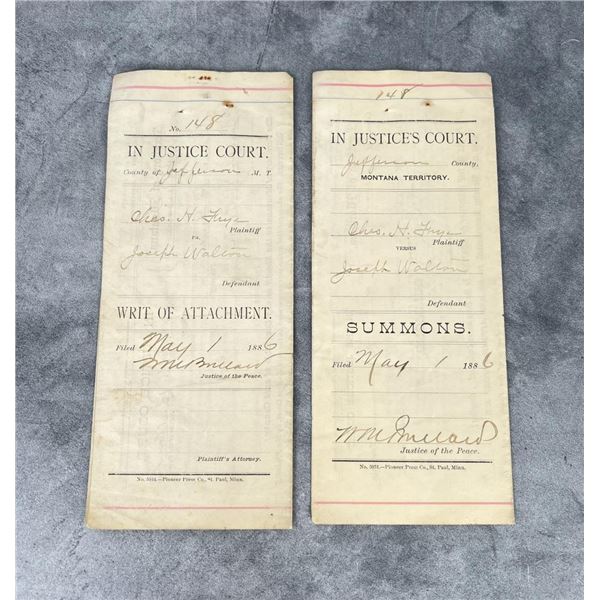 No. 148
IN JUSTICE COURT.
County of Jefferson, M. T.
Chas. H. Frye
Plaintiff
vs.
Joseph Walton
Defendant
WRIT OF ATTACHMENT.
Filed May 1 1886
Wm Bullard
Justice of the Peace.
Plaintiff's Attorney.
Pioneer Press Co., St. Paul, Minn.
148
IN JUSTICE'S COURT.
Jefferson County,
MONTANA TERRITORY.
Chas. H. Frye
Plaintiff
VERSUS
Joseph Walton
Defendant
SUMMONS.
Filed May 1 1886
Wm Bullard
Justice of the Peace.
Pioneer Press Co., St. Paul, Minn.